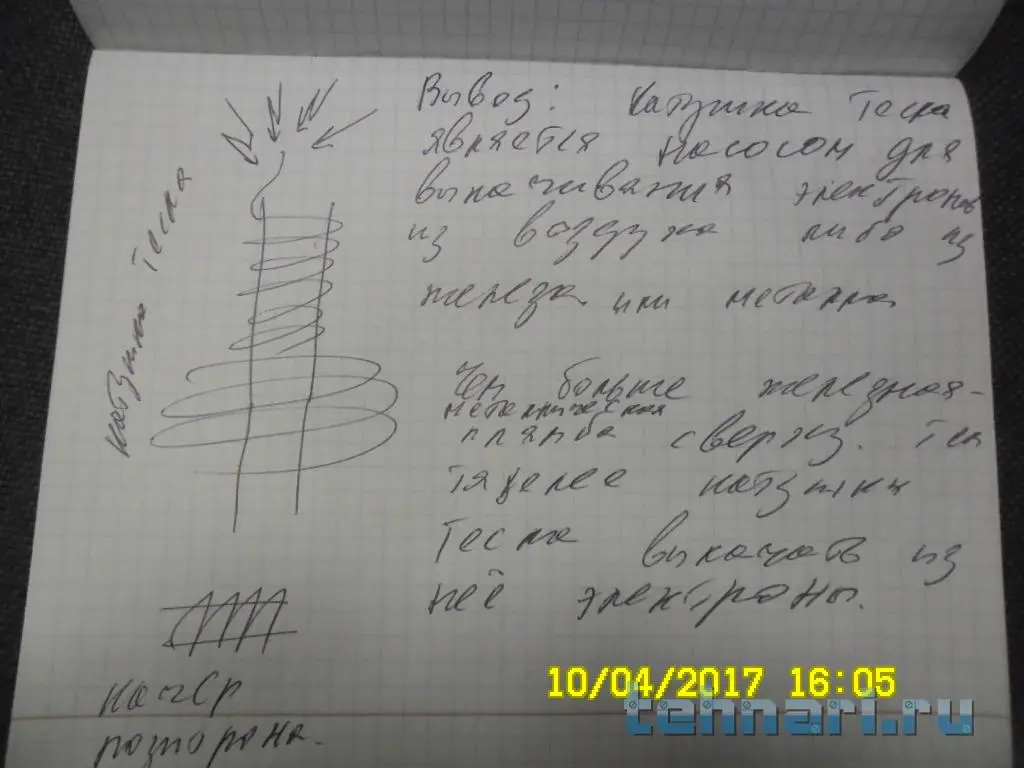 Вывод: Катушка Тесла
является насосом для
выкачивания электронов
из воздуха либо из
железа или металла
Чем больше железная-
металлическая
плямба сверху. Тем
тяжелее катушки
Тесла выкачать из
неё электроны.
катушка Тесла
качСр
10/04/2017 16:05
tennari.ru